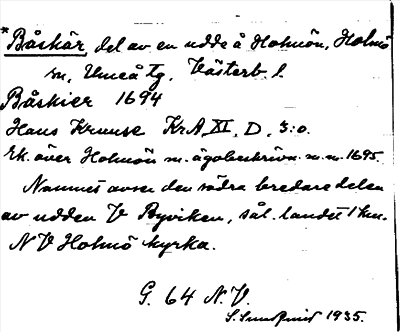 *Båskär, del av en udde å Holmön, Holmö
sn, Umeå tg, Västerb. l.
Båskier 1694
Hans Kruuse KrA, XI, D, 3:o.
Ek. över Holmön m. ägobeskrivn. m.m. 1695.
Namnet avser den södra bredare delen
av udden V Byviken, sål. landet 1 km.
NV Holmö kyrka.
G. 64 N.V.
S. Sundqvist 1935.